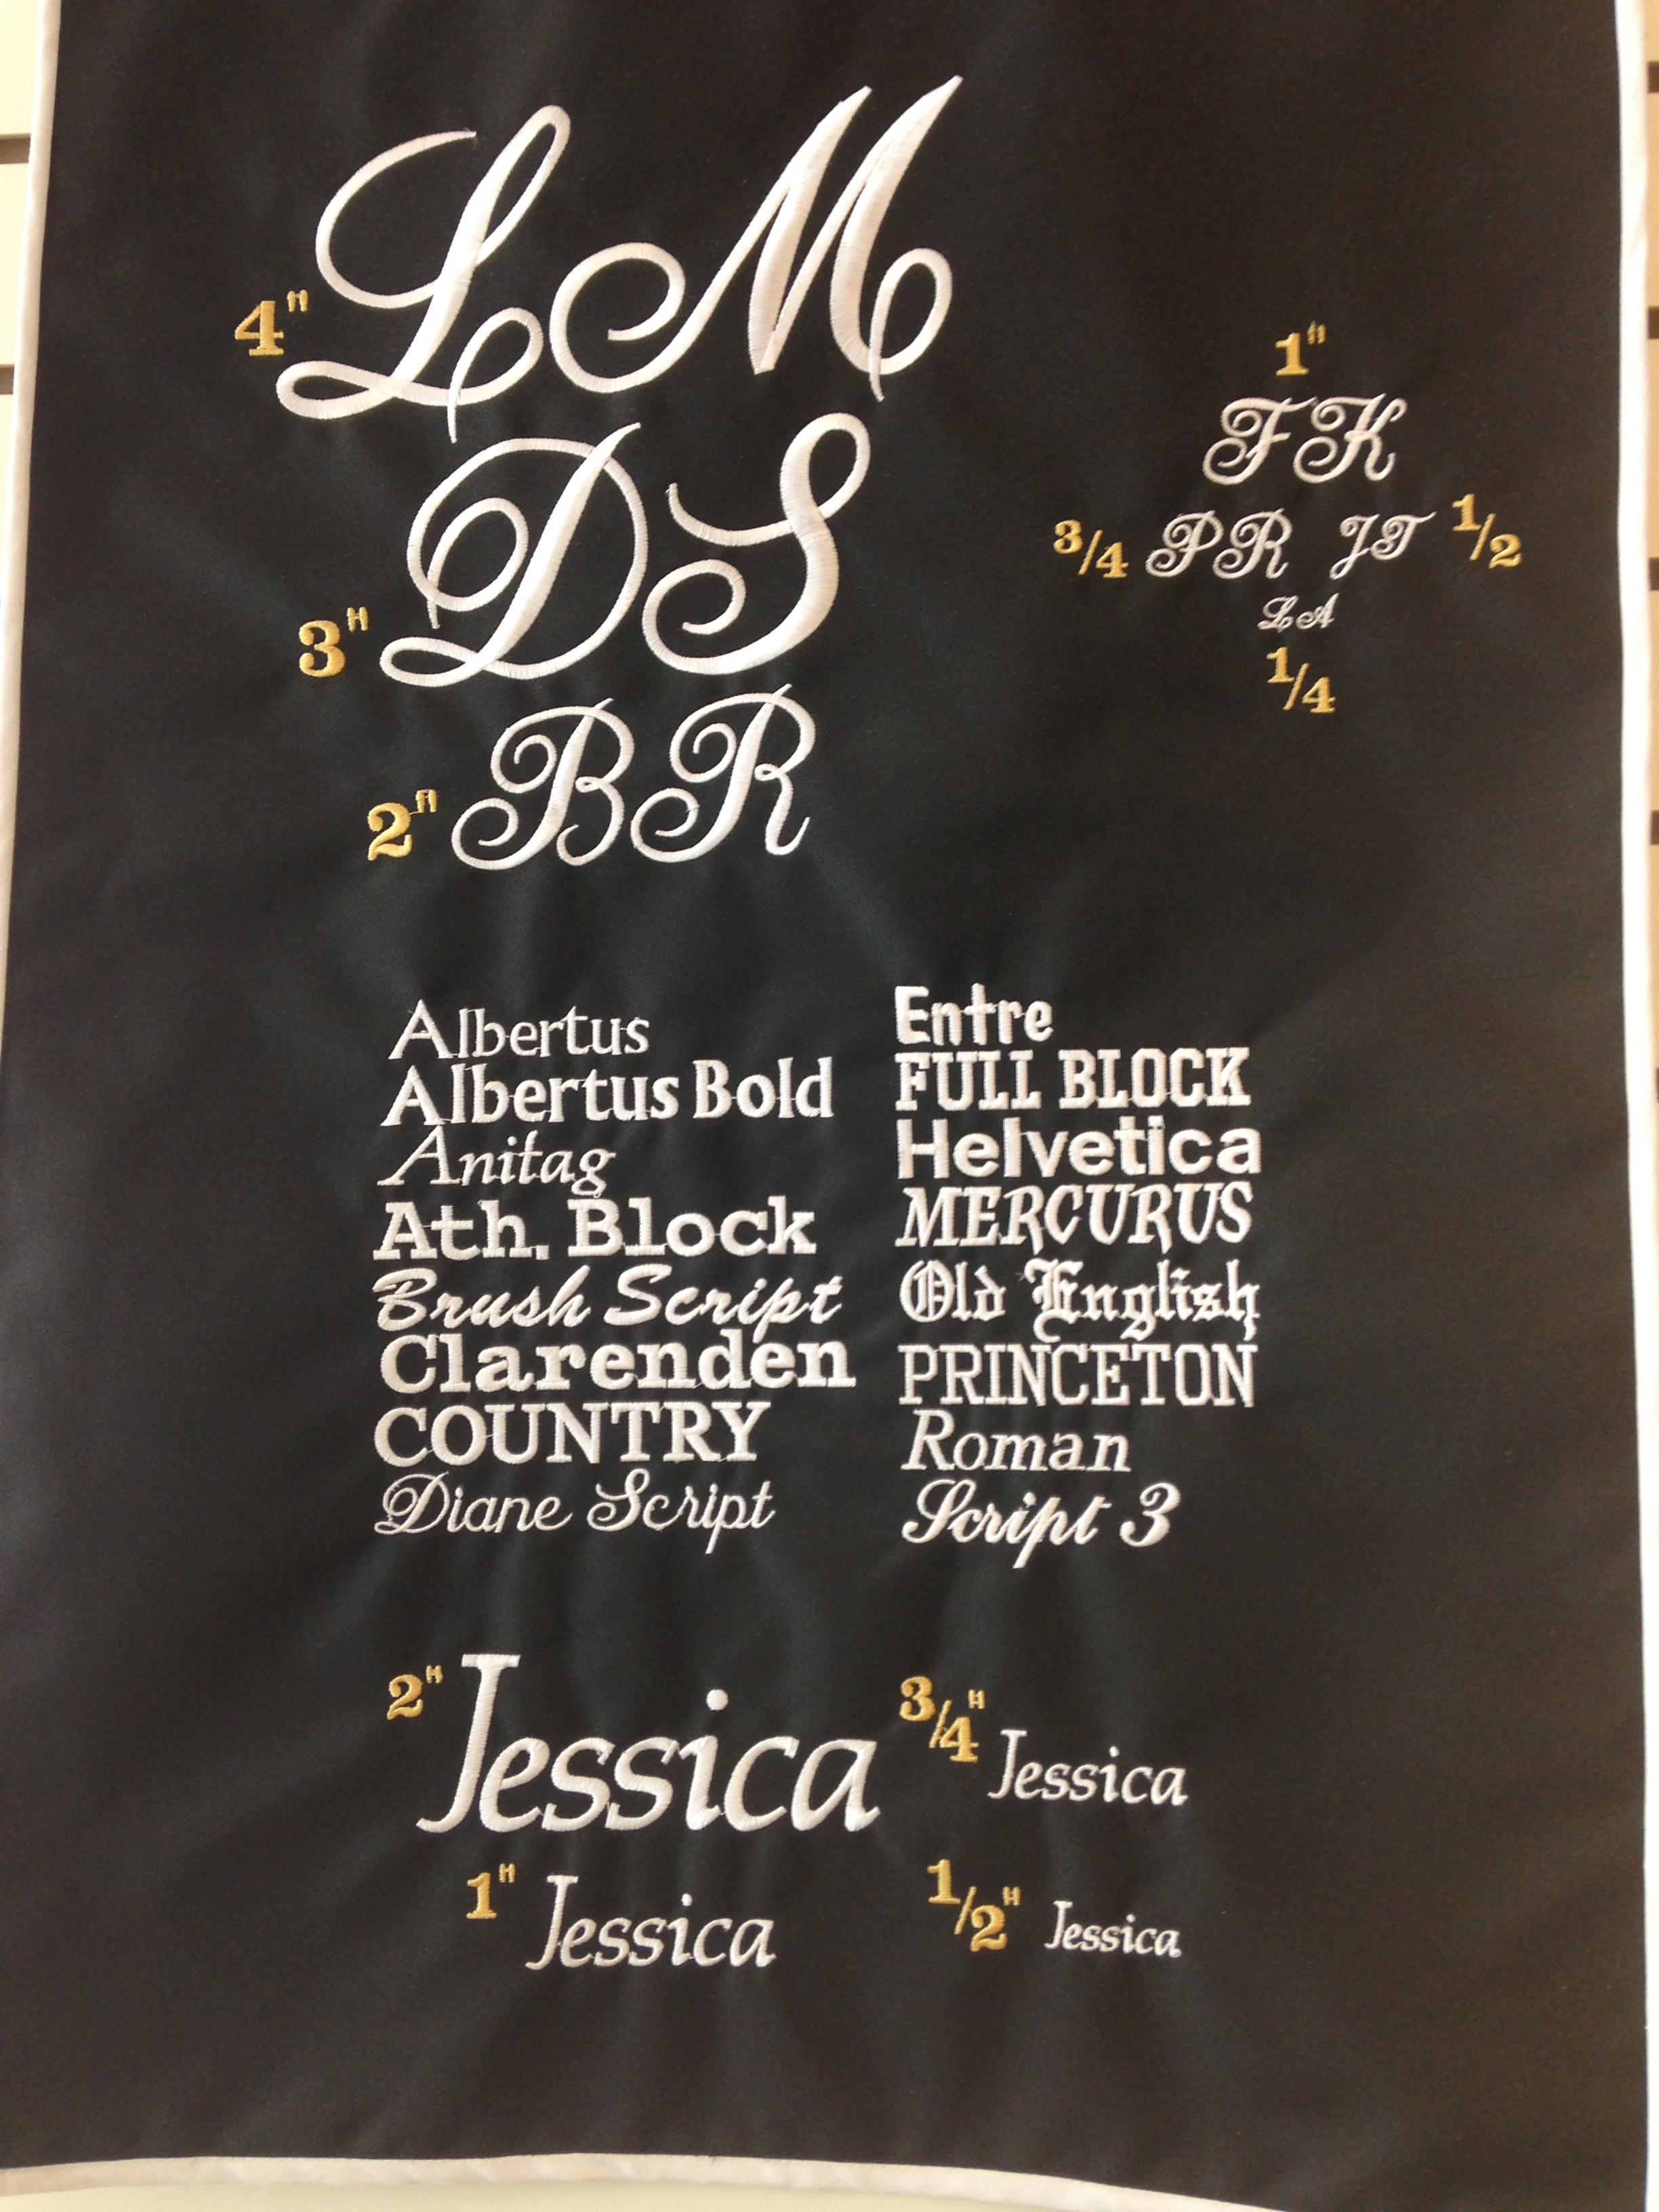 4" LM
3" DS
2" BR
1"
FK
3/4 PR JT 1/2
LA
1/4
Albertus
Albertus Bold
Anitag
Ath. Block
Brush Script
Clarenden
COUNTRY
Diane Script
Entre
FULL BLOCK
Helvetica
MERCURUS
Old English
PRINCETON
Roman
Script 3
2" Jessica
3/4" Jessica
1" Jessica
1/2" Jessica